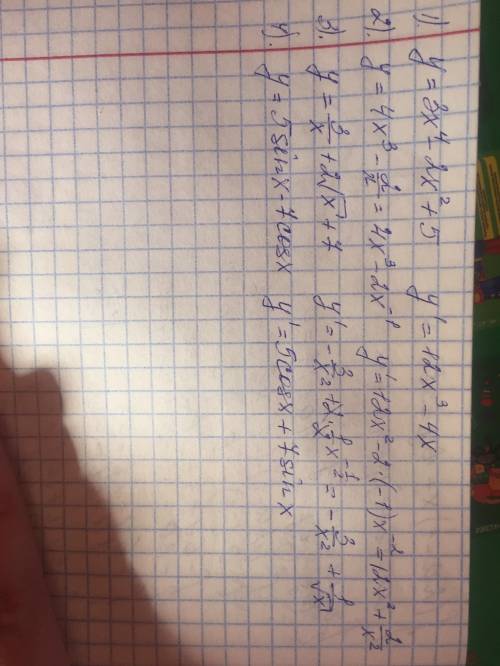 1). y = 3x⁴ - 2x² + 5 y' = 12x³ - 4x
2). y = 4x³ - 2/x = 4x³ - 2x⁻¹ y' = 12x² - 2·(-1)x⁻² = 12x² + 2/x²
3). y = 3/x + 2√x + 7 y' = -3/x² + 2·1/2 x^(-1/2) = -3/x² + 1/√x
4). y = 5sin x - 7cos x y' = 5cos x + 7sin x